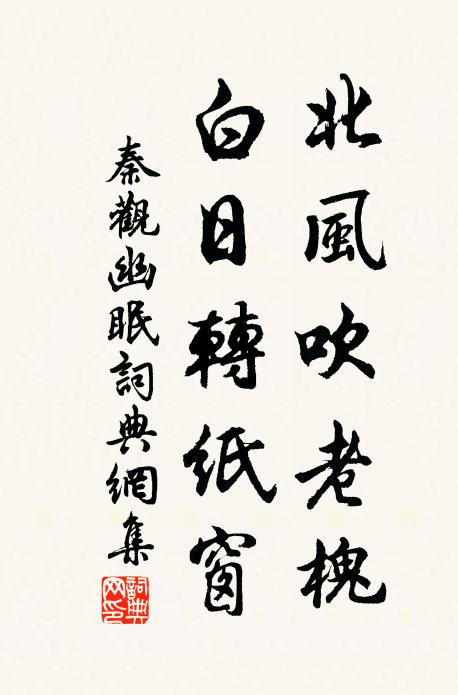 北風吹老槐
白日轉紙窗
秦觀幽眠詞典網集
詞典網印